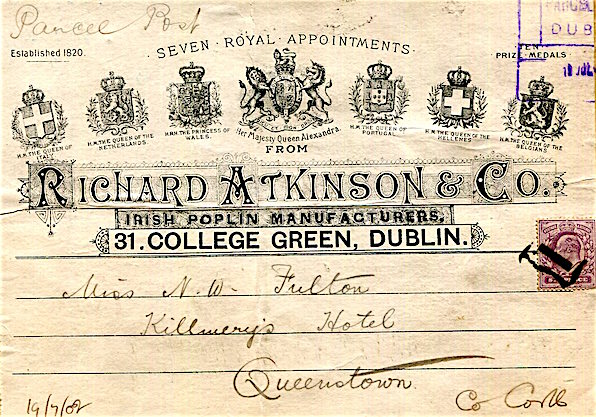 Parcel Post
PARCEL
DUB
Established 1820.
SEVEN · ROYAL · APPOINTMENTS ·
TEN
PRIZE · MEDALS
H.M. THE QUEEN OF ITALY
H.M. THE QUEEN OF THE NETHERLANDS.
H.R.H. THE PRINCESS OF WALES.
Her Majesty Queen Alexandra.
H.M. THE QUEEN OF PORTUGAL.
H.M. THE QUEEN OF THE HELLENES
H.M. THE QUEEN OF THE BELGIANS
FROM
RICHARD ATKINSON & CO.
IRISH POPLIN MANUFACTURERS,
31. COLLEGE GREEN, DUBLIN.
Miss N. W. Fulton
Killmery's Hotel
Queenstown.
Co Cork